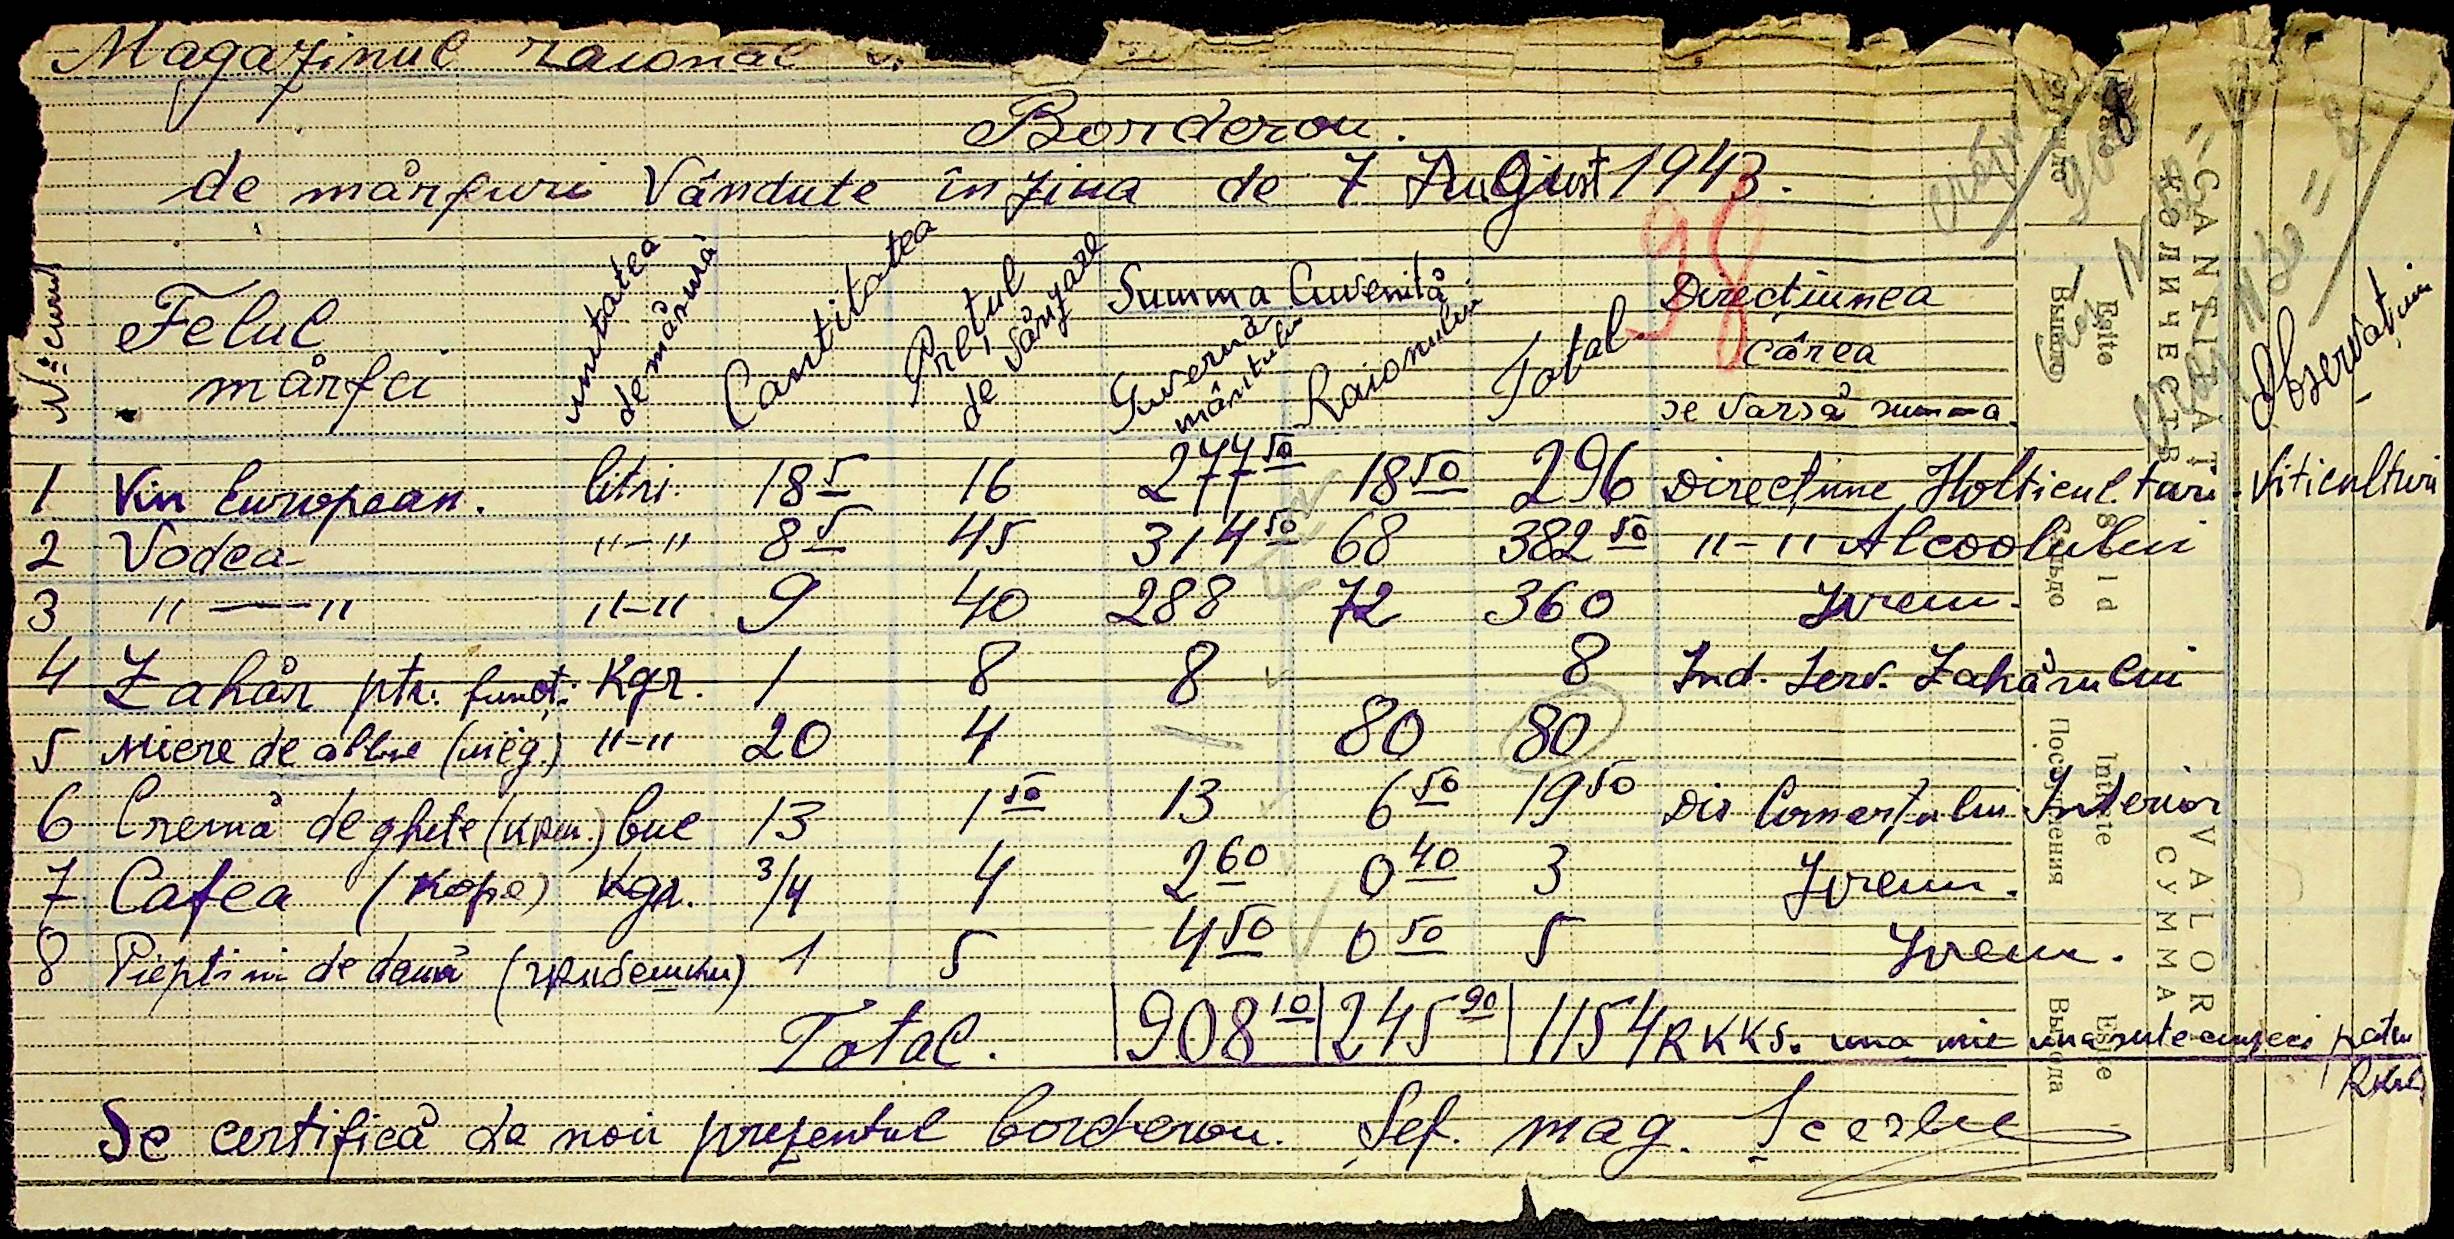 Magazinul raional
Borderou.
de mărfuri Vândute în ziua de 7 August 1943.
98
No curent Felul mărfei unitatea de măsură Cantitatea Prețul de Vânzare Summa Cuvenită Guvernământului Raionului Total Direcțiunea cărea se varsă summa Observațiuni
1 Vin European. litri. 18 5 16 277 50 18 50 296 Direcțiune Holticulturi. Viticulturi
2 Vodca "-" 8 5 45 314 50 68 382 50 "-" Alcoolului
3 "—" "-" 9 40 288 72 360 Ivrem.
4 Zahăr ptr. funcț. Kgr. 1 8 8 8 Ind. Serv. Zahărului
5 Miere de albine "-" 20 4 — 80 80
6 Cremă de ghete (крем.) buc 13 1 50 13 6 50 19 50 Dir Comerțului Interior
7 Cafea (кофе) Kgr. 3/4 4 2 60 0 40 3 Ivrem.
8 Piepteni de damă 1 5 4 50 0 50 5 Ivrem.
Total. 908 10 245 90 1154 RKKS. una mie una sute cinzeci patru
RKKS
Se certifică de noi prezentul borderou. Șef. mag.
CANTITAT
КОЛИЧЕСТВ
VALOR
СУММА
Eşite
Sold
Сальдо
Intrate
Поступления
Eşite